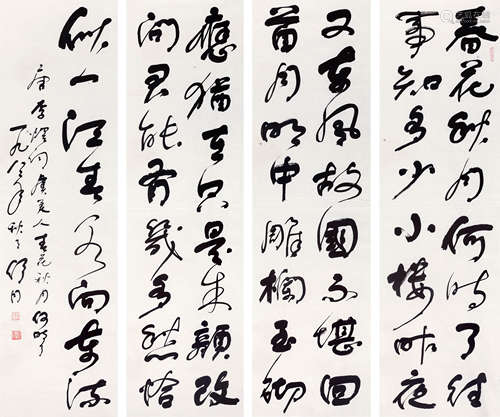 春花秋月何時了往
事知多少小樓昨夜
又東風故國不堪回
首月明中雕欄玉砌
應猶在只是朱顏改
問君能有幾多愁恰
似一江春水向東流
唐李煜詞虞美人春花秋月何時了
一九八年秋舒同